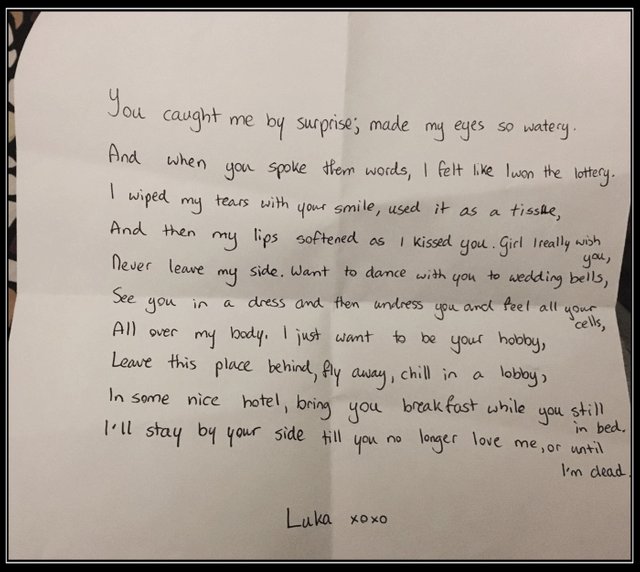 You caught me by surprise; made my eyes so watery.
And when you spoke them words, I felt like I won the lottery.
I wiped my tears with your smile, used it as a tissue,
And then my lips softened as I kissed you. Girl I really wish
you,
Never leave my side. Want to dance with you to wedding bells,
See you in a dress and then undress you and feel all your
cells,
All over my body. I just want to be your hobby,
Leave this place behind, fly away, chill in a lobby,
In some nice hotel, bring you breakfast while you still
in bed.
I'll stay by your side till you no longer love me, or until
I'm dead.
Luka xoxo